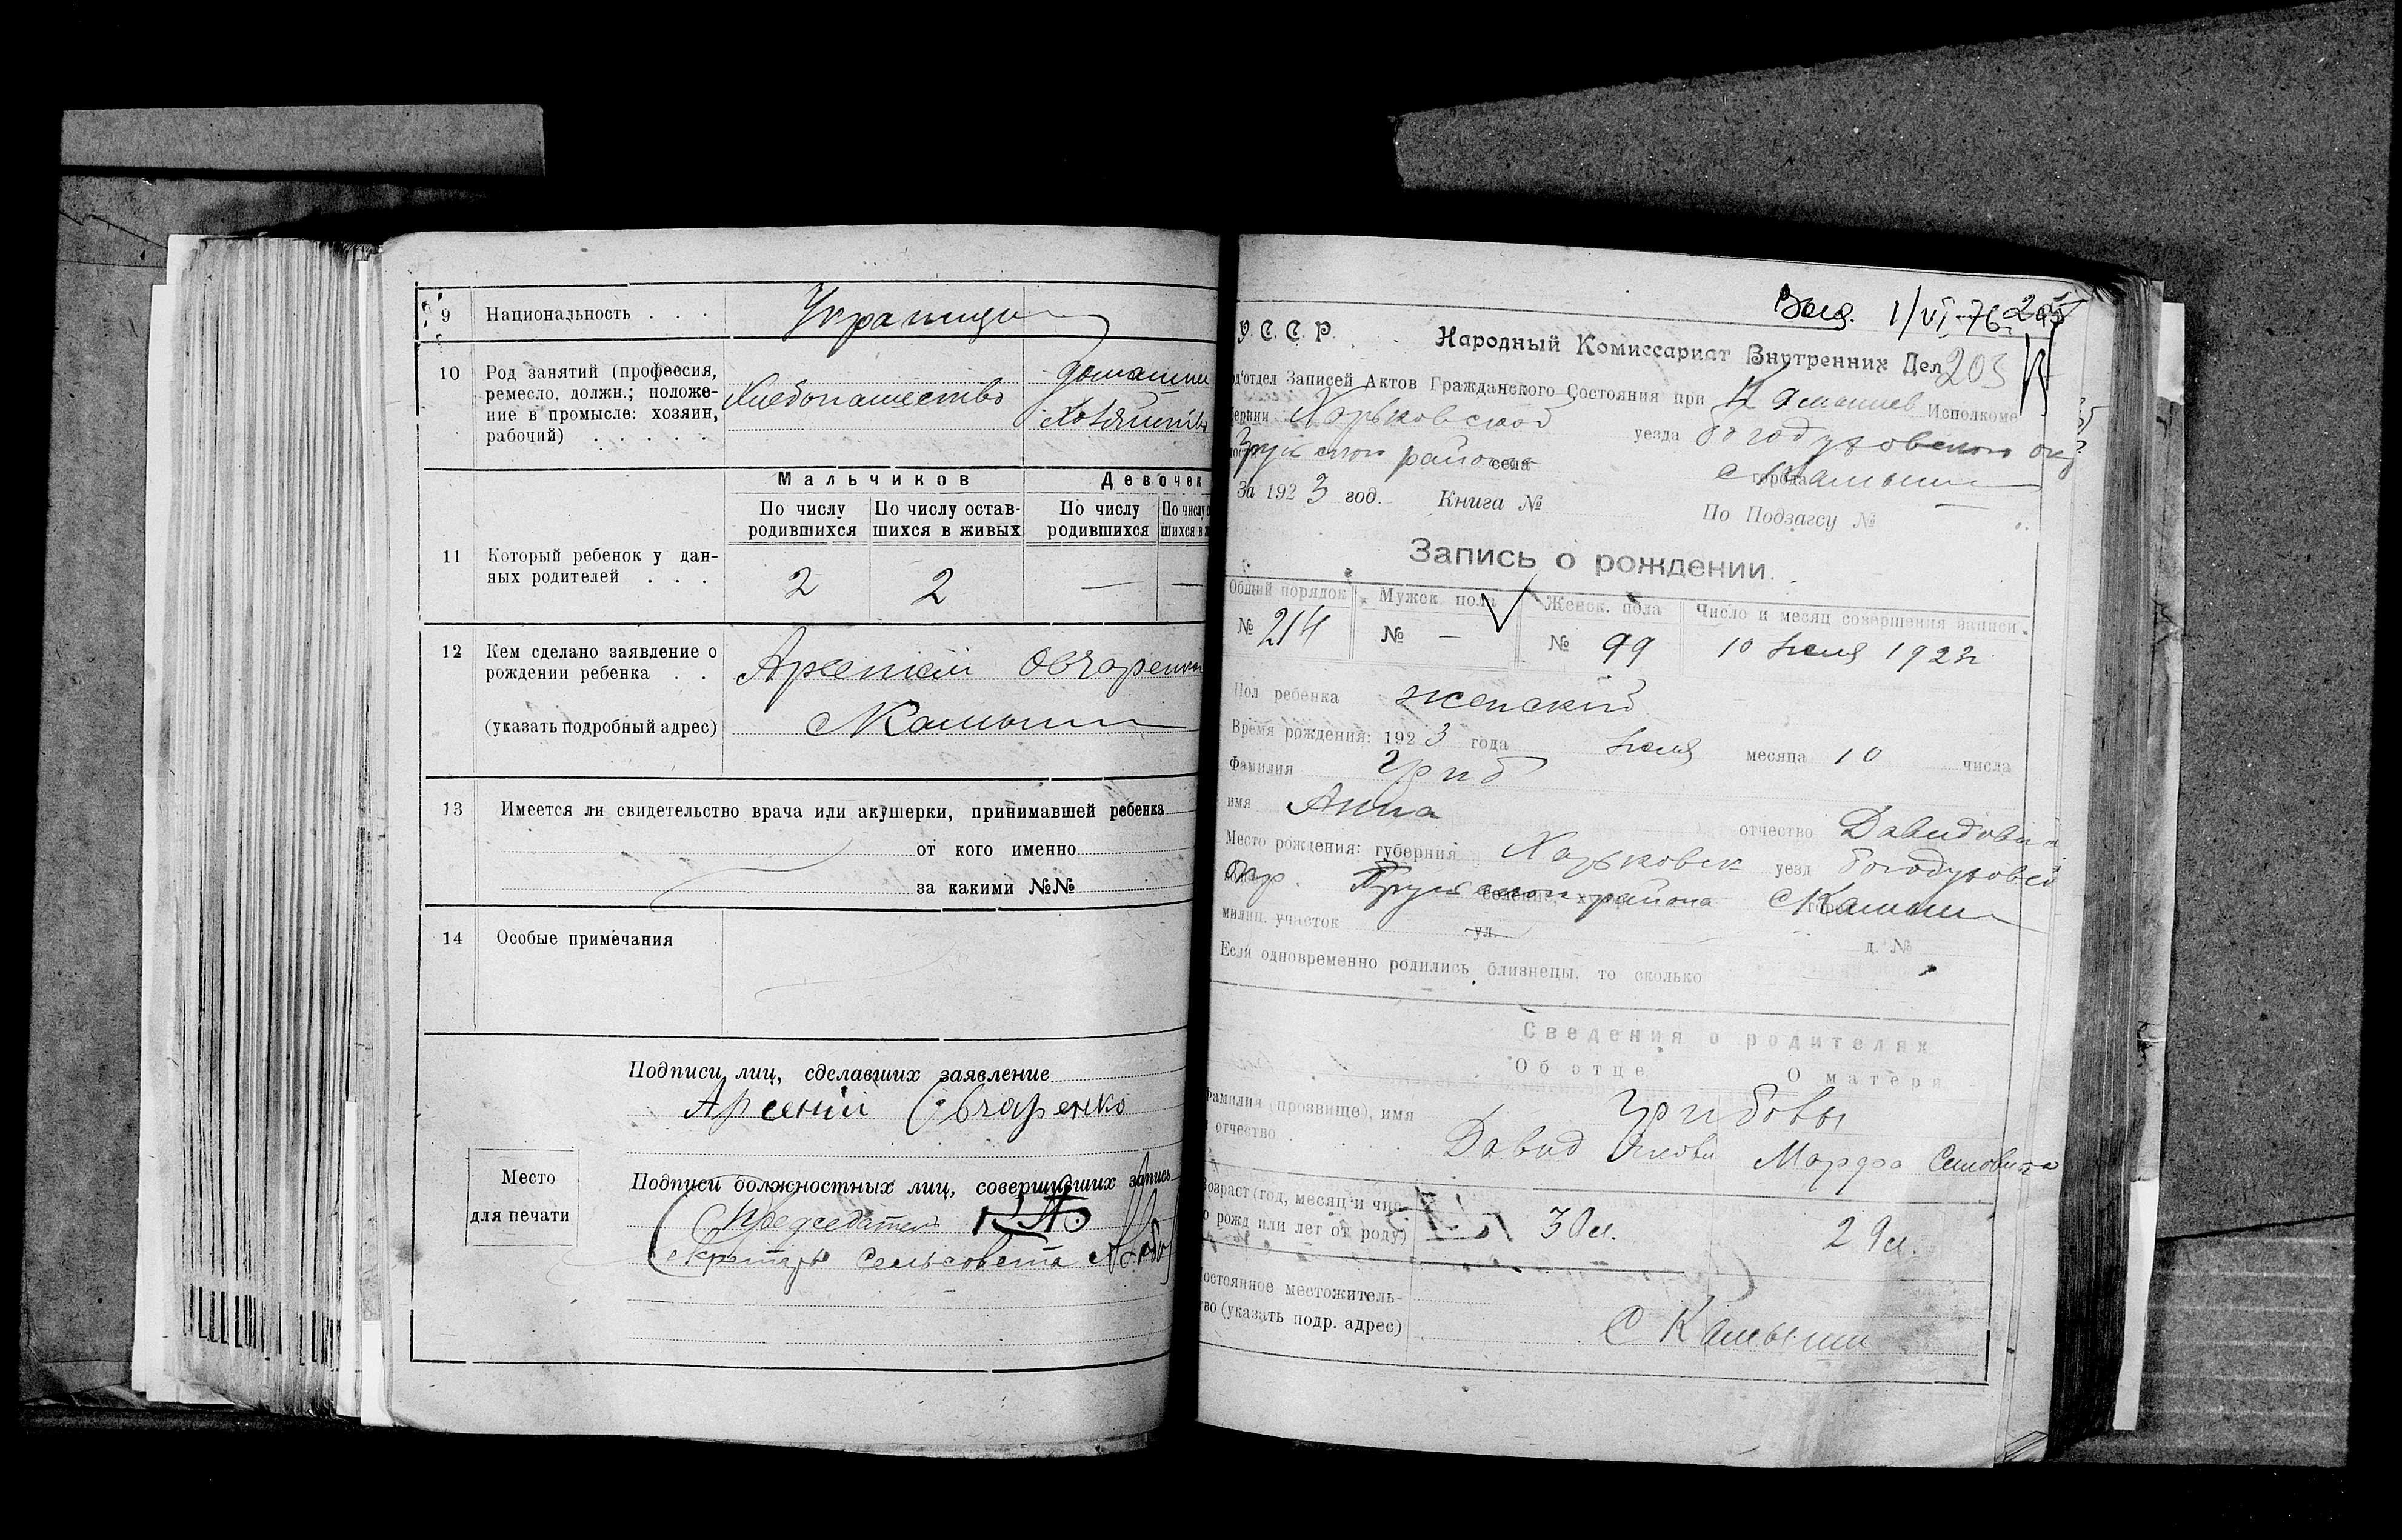 9 Национальность . . . Украинцы
10 Род занятий (профессия,
ремесло, должн.; положе-
ние в промысле: хозяин,
рабочий) . . . . .
Хлебопашество
домашнее
Мальчиков Девочек
По числу родившихся
По числу остав-
шихся в живых
По числу родившихся
11 Который ребенок у дан-
ных родителей . . .
2 2 — —
12 Кем сделано заявление о
рождении ребенка . .
(указать подробный адрес)
Арсений Овчаренко
С Камыши
13 Имеется ли свидетельство врача или акушерки, принимавшей ребенка
от кого именно
за какими №№
14 Особые примечания
Подписи лиц, сделавших заявление
Арсений Овчаренко
Место
для печати
Подписи должностных лиц, совершивших запись
Председатель
Секретарь Сельсовета
1/VI-76
У. С. С. Р. Народный Комиссариат Внутренних Дел 203
Записей Актов Гражданского Состояния при Исполкоме
Харьковской уезда Богодуховского окр
района села города С Камыши
За 1923 год. Книга № По Подзагсу №
Запись о рождении.
Общий порядок Мужск. пола Женск. пола Число и месяц совершения записи.
№ 214 № — № 99 10 1923
Пол ребенка женский
Время рождения: 1923 года месяца 10 числа
Фамилия Гриб
имя Анна отчество Давидовна
Место рождения: губерния Харьковск уезд Богодуховск
Окр. района С Камыши
милиц. участок ул. д. №
Если одновременно родились близнецы, то сколько
Сведения о родителях
Об отце О матери
Фамилия (прозвище), имя
отчество .
Грибовы
Давид Марфа
Возраст (год, месяц и чис-
рожд или лет от роду)
30 л. 29 л.
Постоянное местожитель-
во (указать подр. адрес)
С Камыши